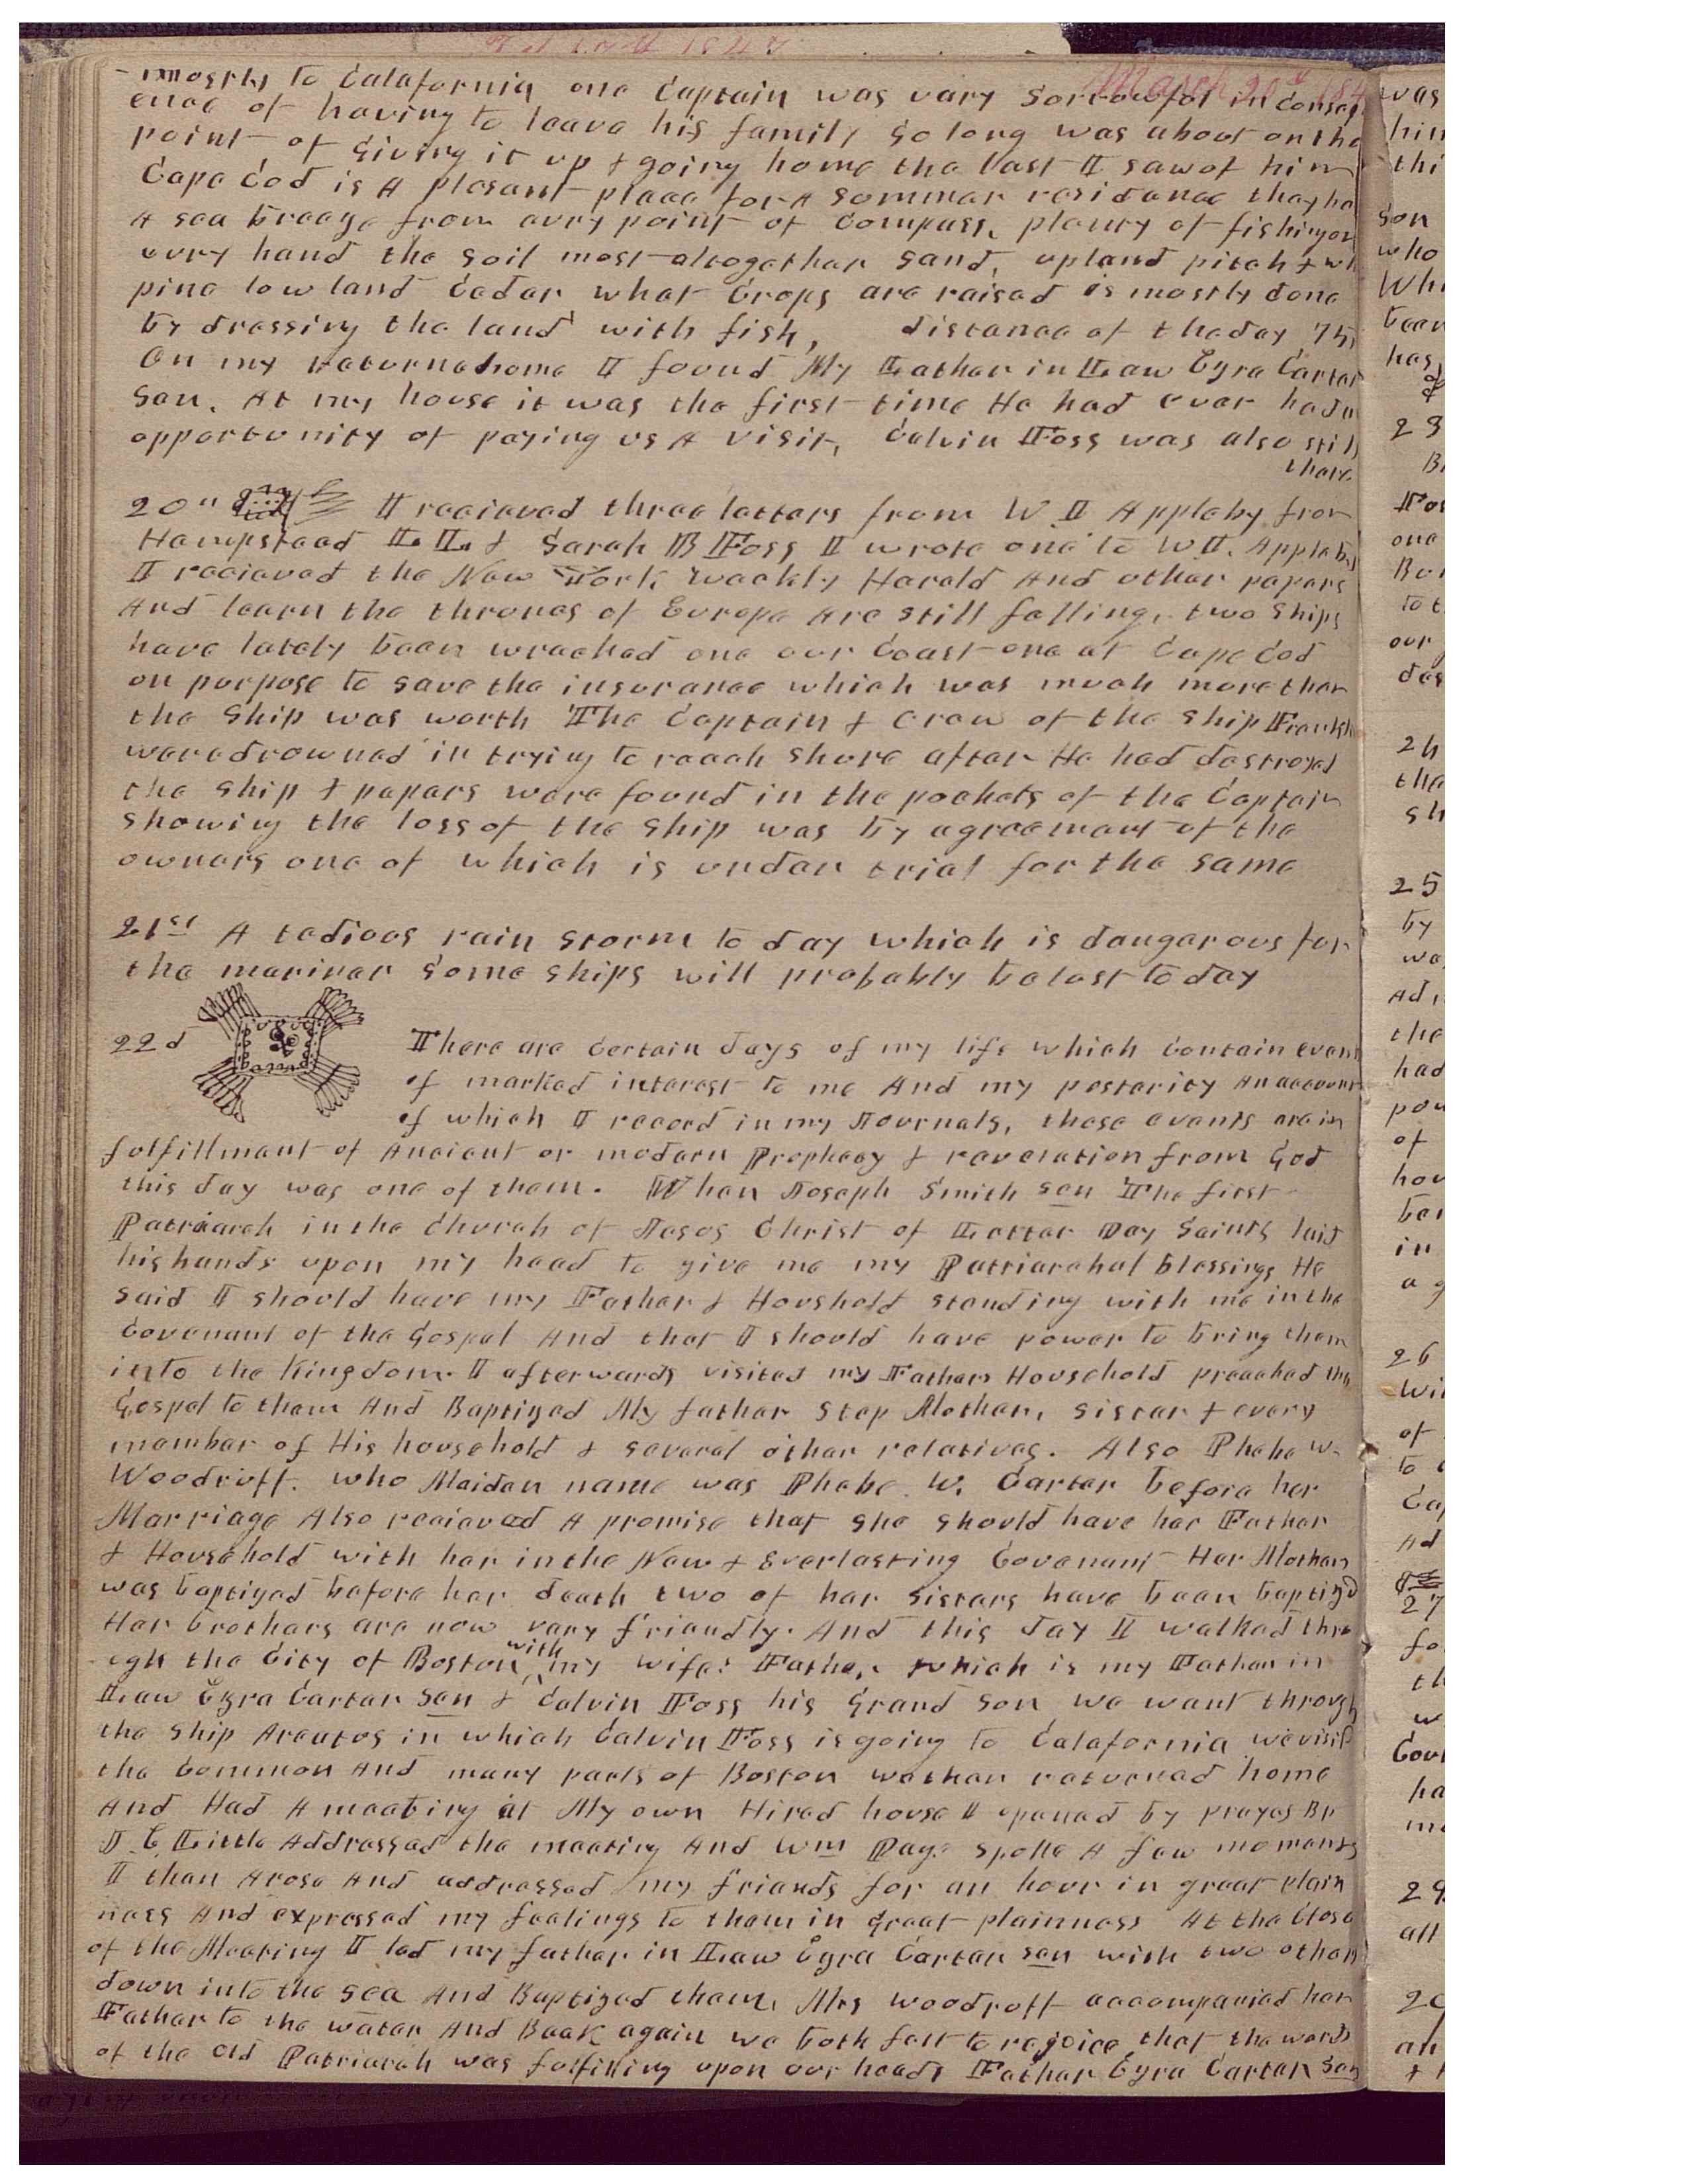 March 20th 184
mostly to Calafornia one Captain was vary Sorrowful in conseq
ence of having to leave his family so long was about on the
point of giving it up & going home the last I saw of him
Cape Cod is A plesant place for A sommer residence they ha
A sea breeze from evry point of compass, plenty of fishing on
evry hand the soil most altogether sand, upland pitch & wh
pine low land Cedar what crops are raised is mostly done
by dressing the land with fish, distance of the day 75
On my returne home I found My Father in Law Ezra Carter
Sen. At my house it was the first time He had ever had a
opportunity of paying us A visit, Calvin Foss was also still
there.
20" I recieved three letters from W I Appleby from
Hampstead L. L. & Sarah B Foss I wrote one to W I. Appleby
I recieved the New York weekly Herald And other papers
And learn the thrones of Europe Are still falling, two ships
have lately been wrecked one our Coast one at Cape Cod
on purpose to save the insurance which was much more than
the ship was worth The Captain & Crew of the ship Frankli
were drowned in trying to reach shore after He had destroyed
the ship & papers were found in the pockets of the Captain
showing the loss of the ship was by agreement of the
owners one of which is under trial for the same
21st A tedious rain storm to day which is dangerous for
the mariner Some ships will probably be lost to day
22d There are certain days of my life which contain event
of marked interest to me And my posterity An account
of which I record in my Journals, these events are in
fulfillment of Ancient or modern Prophecy & reveration from God
this day was one of them. When Joseph Smith sen The first
Patriarch in the Church of Jesus Christ of Latter Day Saints laid
his hands upon my head to give me my Patriarchal blessings He
said I should have my Father & Houshold standing with me in the
Covenant of the Gospel And that I should have power to bring them
into the Kingdom. I afterwards visited my Fathers Household preached the
Gospel to them And Baptized My father Step Mother, sister & every
member of His household & several other relatives. Also Phebe W-
Woodruff. who Maiden name was Phebe. W. Carter before her
Marriage Also recieved A promise that she should have her Father
& Household with her in the New & Everlasting Covenant Her Mother
was baptized before her death two of her sisters have been baptized
Her brothers are now vary friendly. And this day I walked thro
ugh the City of Boston with my wifes Father, which is my Father in
Law Ezra Carter Sen & Calvin Foss his Grand Son we went through
the ship Areatus in which Calvin Foss is going to Calafornia we visit
the Common And many parts of Boston we then returned home
And Had A meeting at My own Hired house I opened by prayer Br
J. C. Little Addressed the meeting And Wm Page spoke A few moments
I then Arose And addressed my friends for an hour in great plain
ness And expressed my feelings to them in great plainness At the close
of the Meeting I led my father in Law Ezra Carter sen with two others
down into the sea And Baptized them, Mrs Woodruff accompanied her
Father to the water And Back again we both felt to rejoice that the words
of the old Patriarch was fulfilling upon our heads Father Ezra Carter Sen
was
him
thi
Son
who
Whi
been
has,
&
23
Br
Fos
one
Bo
to t
our
des
24
the
sh
25
by
wa
Ad
the
had
pou
of
hou
be
in
a g
26
wi
of
to
Ca
Ad
27
fo
th
w
Gov
ha
me
29
all
an